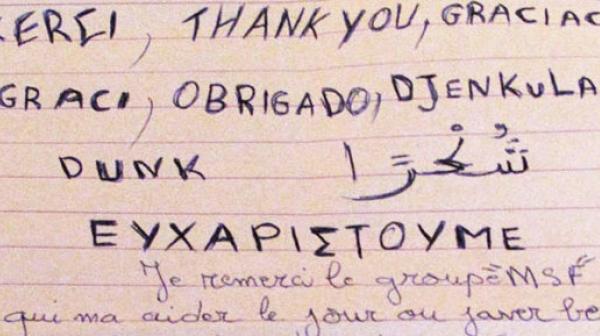 ERΣI, THANK YOU, GRACIAC
GRACI, OBRIGADO, DJENKULA
DUNK شُكْرًا
ΕΥΧΑΡΙΣΤΟΥΜΕ
Je remerci le groupè MSF
qui ma aider le jour ou javer be